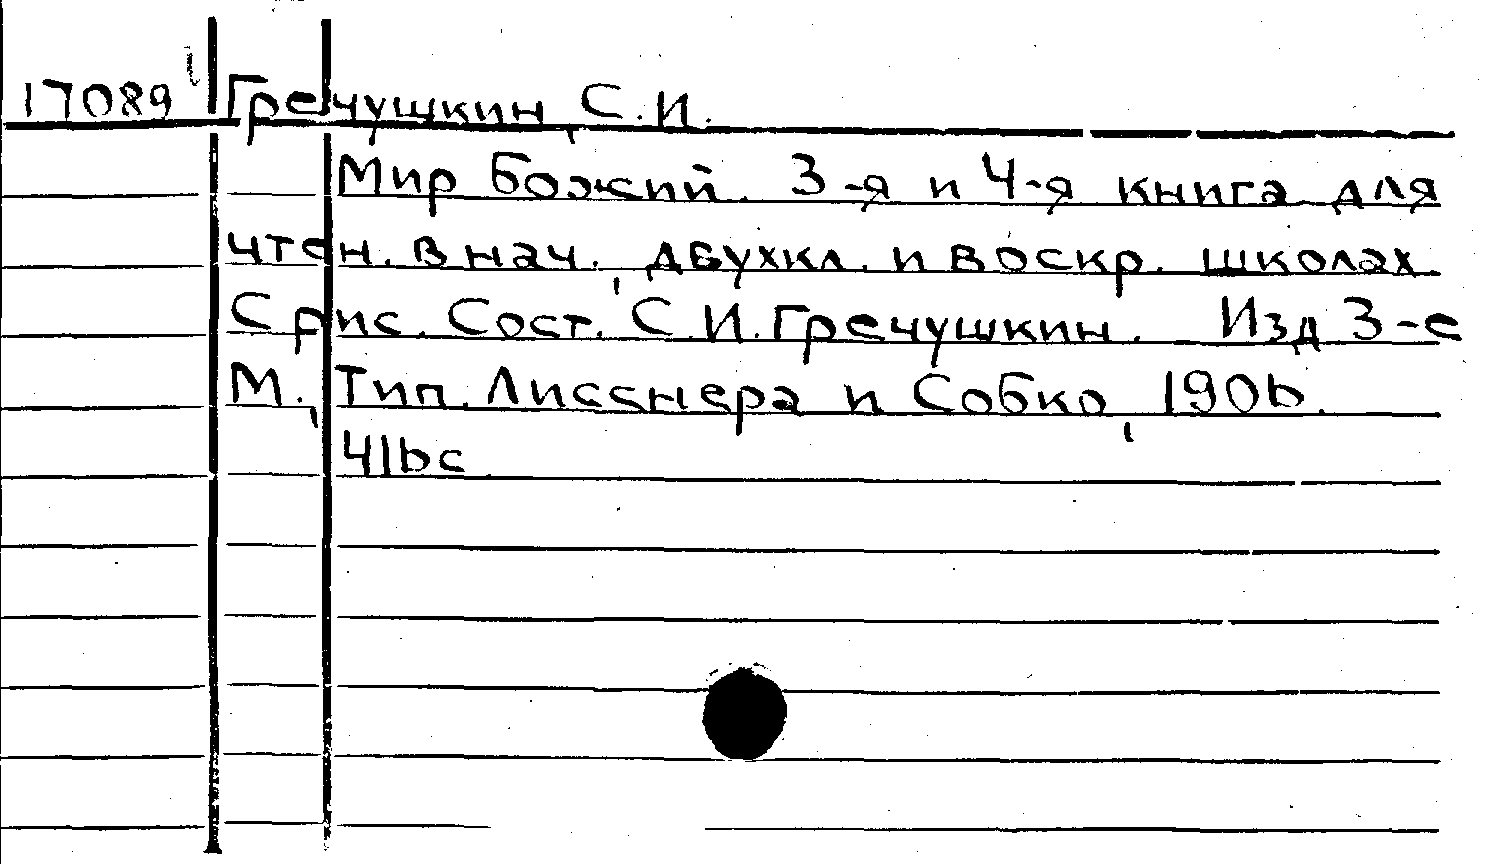 17089 Гречушкин, С.И.
Мир Божий. 3-я и 4-я книга для
чтен. в нач., двухкл. и воскр. школах.
С рис. Сост. С.И.Гречушкин. Изд 3-е
М., Тип. Лисснера и Собко, 1906.
416с